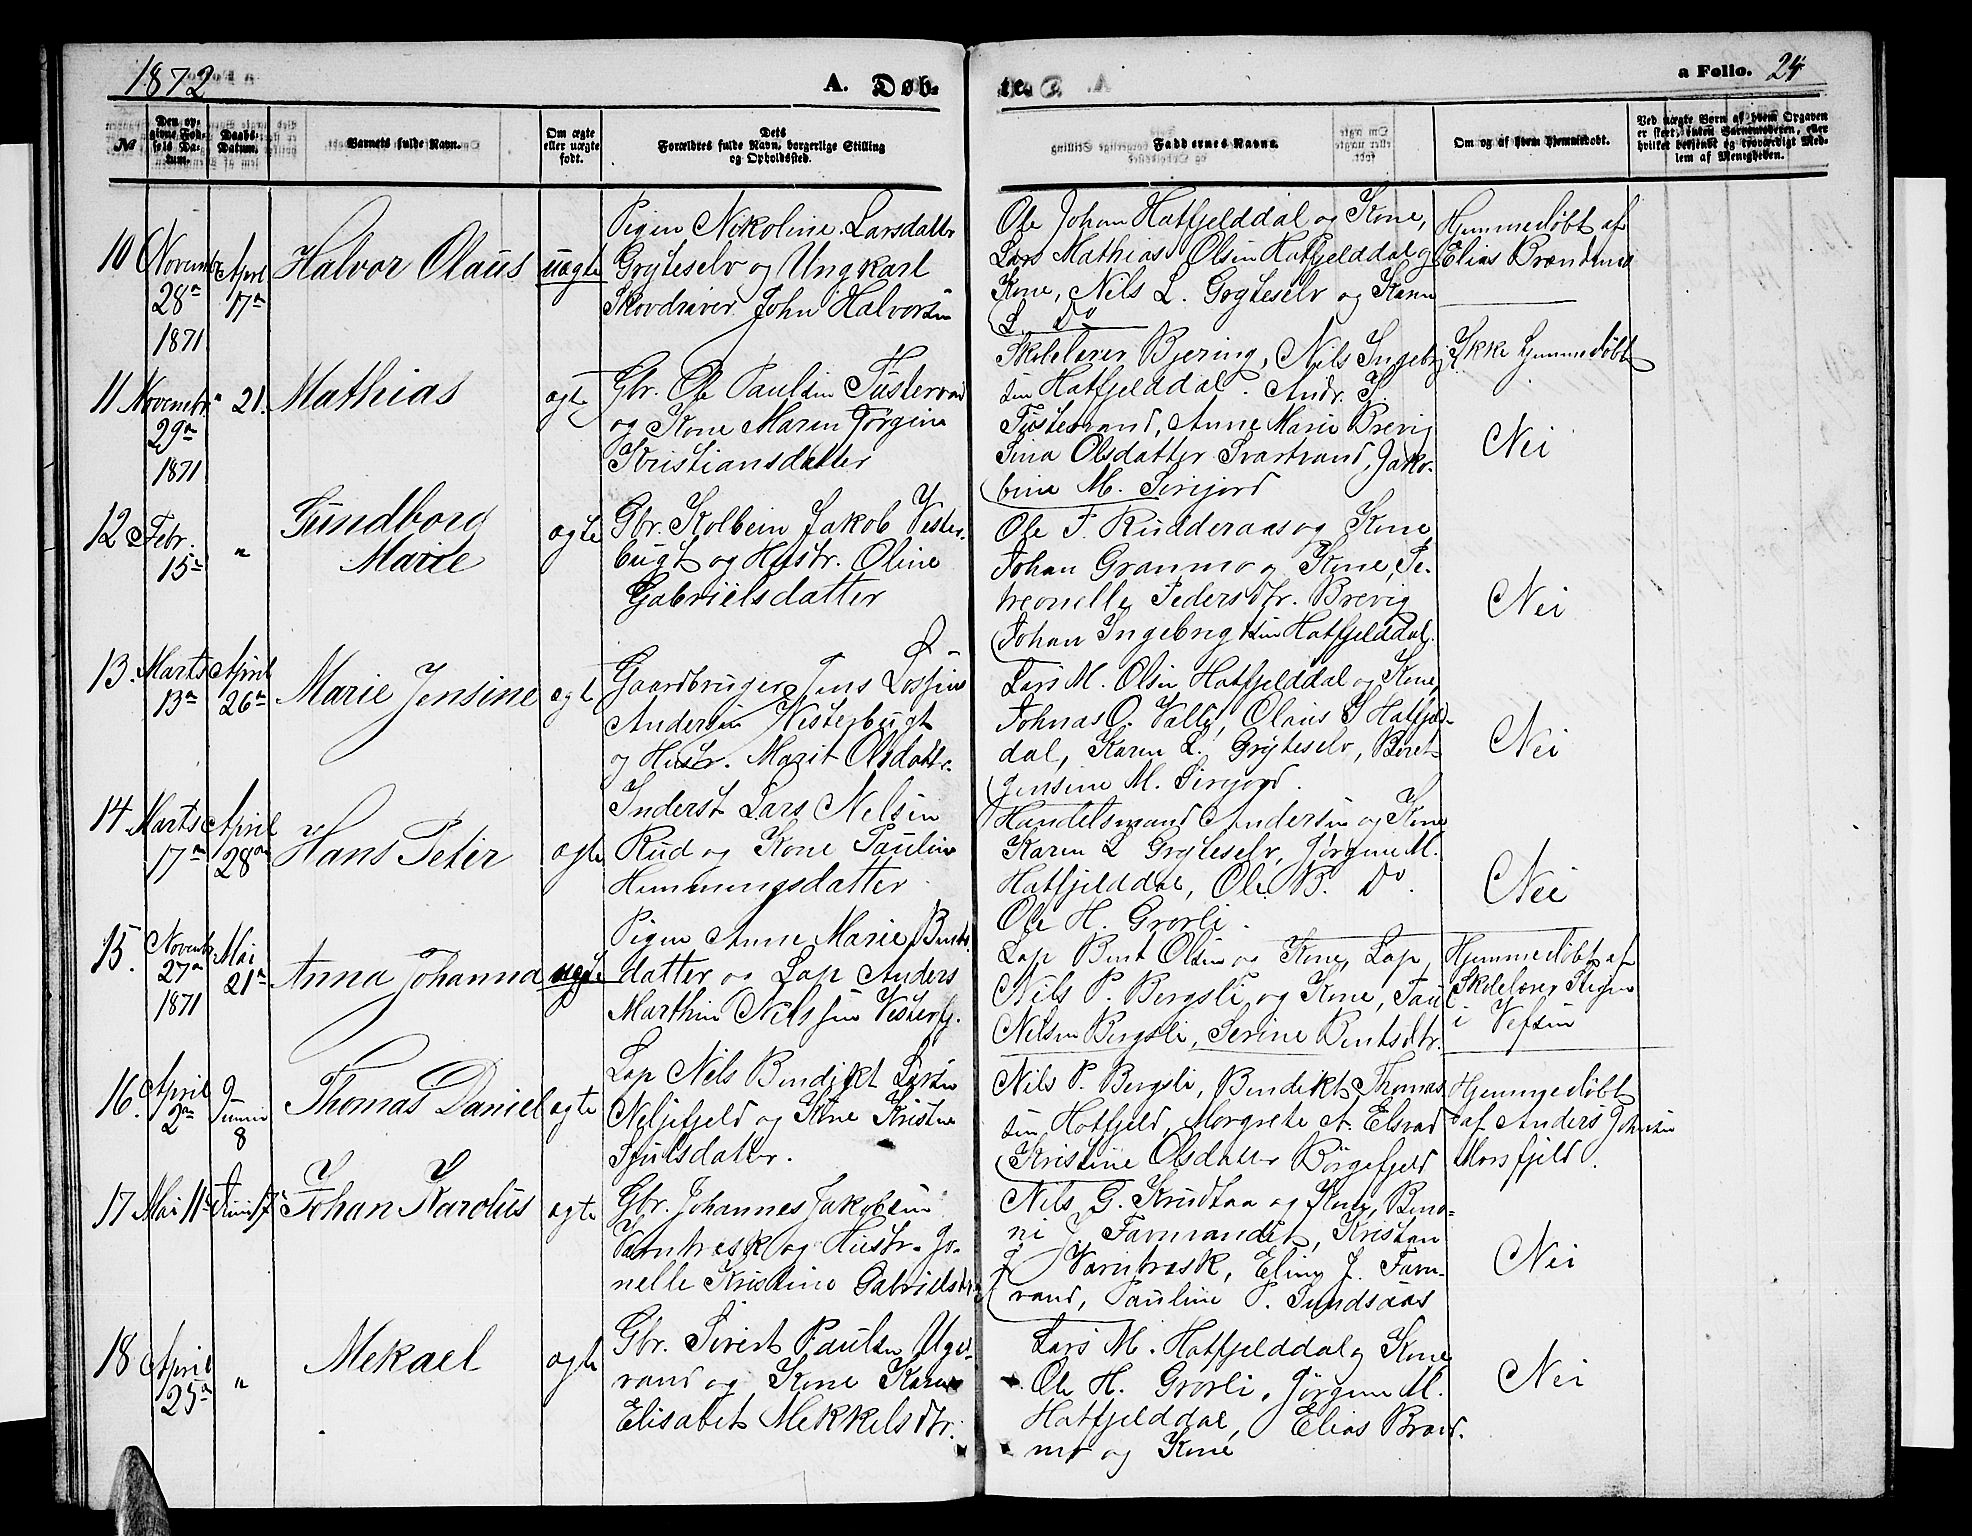 1872
A. Døb-
te.
a Folio. 24
№
Den opgivne Fødsels Datum.
Daabs-Datum.
Barnets fulde Navn.
Om ægte eller uægte født.
Dets Forældres fulde Navn, borgerlige Stilling og Opholdssted.
Faddernes Navne.
Om og af hvem hjemmedøbt.
Ved uægte Børn af hvem Opgaven er skeet, enten Barnemoderen, eller hvilket bekjendt og troværdigt Medlem af Menigheden.
10 Novembr 28de 1871
April 17de
Halvor Olaus
uægte
Pigen Nikoline Larsdatter
Gryteselv og Ungkarl
Skovdriver John Halvorsen
Ole Johan Hatfjelddal og Kone,
Lars Mathias Olsen Hatfjelddal og
Kone, Nils L. Gryteselv og Karen
L. Do
Hjemmedøbt af
Elias Brændmo
11 Novembr 29de 1871
" 21.
Mathias
ægte
Gbr. Ole Paulsen Fustervand
og Kone Maren Jørgine
Kristiansdatter
Skolelærer Bjering, Nils Ingebrigt
sen Hatfjelddal. Andr. J.
Fustervand, Anne Marie Brevig
Sina Olsdatter Svartvand, Jako-
bine M. Sirijord
Ikke hjemmedøbt
Nei
12 Febr. 15de
"
Gundborg
Marie
ægte
Gbr. Kolbein Jakob Vester-
bugt og Hustr. Oline
Gabrielsdatter
Ole F. Rudderaas og Kone
Johan Granmo og Kone, Pe-
tronelle Pedersdtr. Brevig
Johan Ingebrigtsen Hatfjelddal.
Nei
13. Marts 13de
April 26de
Marie Jensine
ægt
Gaardbruger Jens
Andersen Vesterbugt
og Hustr. Marit Olsdatter
Lars M. Olsen Hatfjelddal og Kone,
Johnas O. Valle, Olaus S Hatfjeld-
dal, Karen L. Gryteselv, Beret
Jensine M. Sirijord.
Nei
14 Marts 17de
April 28de
Hans Peter
ægte
Inderst Lars Nelsen
Rud og Kone Pauline
Hemmingsdatter
Handelsmand Andersen og Kone
Karen L Gryteselv, Jørgine M.
Hatfjelddal, Ole B. Do.
Ole H. Grorli.
Nei
15. Novembr 27de 1871
Mai 21de
Anna Johanna
uægte
Pigen Anne Marie Bents-
datter og Lap Anders
Marthin Nelssen Vesterb.
Lap Bent Olsen og Kone, Lap
Nils P. Bergsli og Kone, Paul
Nilsen Bergsli, Serine Bentsdtr.
Hjemmedøbt af
Skolelærer Stigen
i Vefsen
16. April 2de
9 Junni 8
Thomas Daniel
ægte
Lap Nels Bendikt Larsen
og Kone Kristine
Sjulsdatter.
Nils P. Bergsli, Bendikt Thomas
sen Hatfjeld, Margrete A. Elsvad
Kristine Olsdatter Børgefjeld
Hjemmedøbt
af Anders Johnsen
Marsfjeld.
17 Mai 11te
Juni 17
Johan Karolus
ægte
Gbr. Johannes Jakobsen
Varntresk og Hustr. Jo-
nelle Kristine Gabrielsdtr
Nils G. Krudtaa og Kone, Beno-
ni J Favnvandet, Kristen
J Varntræsk, Eline J. Favn-
vand, Pauline P. Sundsaas
Nei
18 April 25de
"
Mekael
ægte
Gbr. Sivert Paulsen Ugel-
vand og Kone Karen
Elisabet Mekkelsdtr.
Lars M. Hatfjelddal og Kone
Ole H. Grorli, Jørgine M.
Hatfjelddal, Elias Brænd-
mo og Kone
Nei